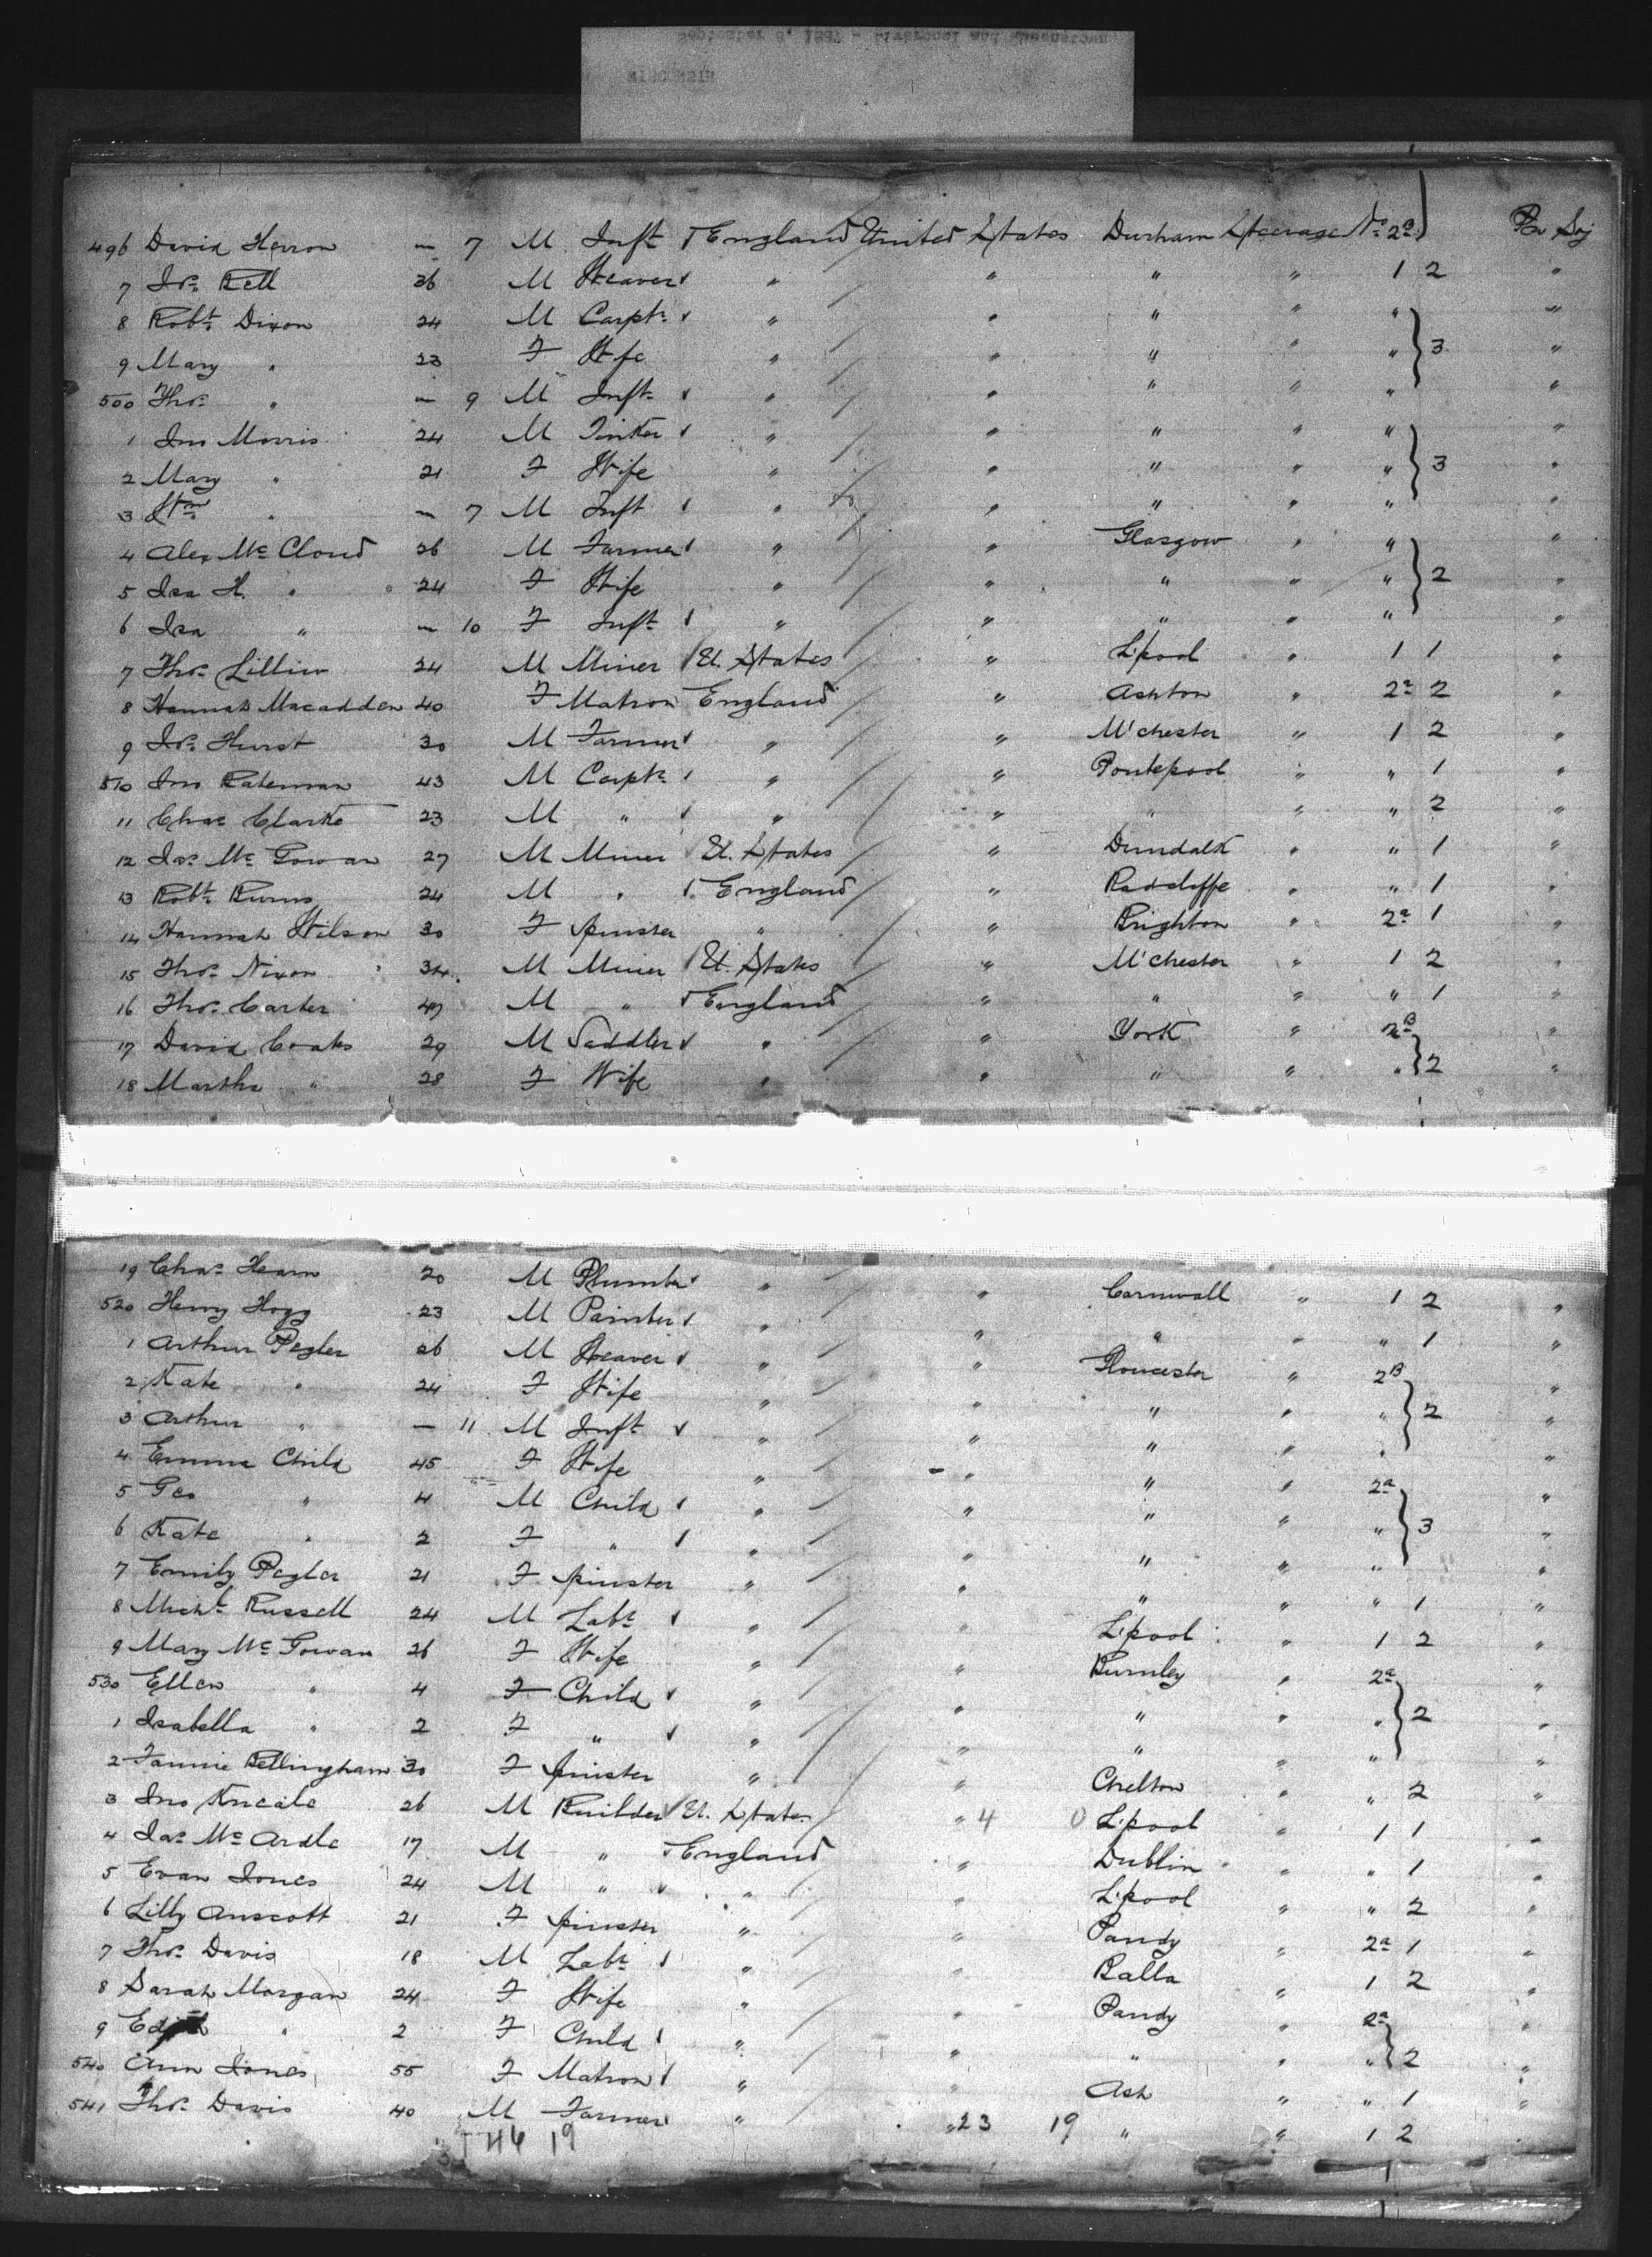 496 David Herron — 7 M Inft England United States Durham Steerage No 2a Pr Soj
7 Jos. Bell 36 M Weaver " " " " 1 2 "
8 Robt Dixon 24 M Carptr " " " " " "
9 Mary " 23 F Wife " " " " " 3 "
500 Thos. " — 9 M Inft " " " " " "
1 Jno Morris 24 M Tinker " " " " " "
2 Mary " 21 F Wife " " " " " 3 "
3 Wm " — 7 M Inft " " " " " "
4 Alex McCloud 26 M Farmer " " Glasgow " " "
5 Isa H. " 24 F Wife " " " " " 2 "
6 Isa " — 10 F Inft " " " " " "
7 Thos. 24 M Miner U. States " L'pool " 1 1 "
8 Hannah Macadden 40 F Matron England " Ashton " 2a 2 "
9 Jos. Hurst 30 M Farmer " " M'chester " 1 2 "
510 Jno Bateman 43 M Carptr " " Pontepool " " 1 "
11 Chas Clarke 23 M " " " " " " 2 "
12 Jas. McGowan 27 M Miner U. States " Dundalk " " 1 "
13 Robt Burns 24 M " England " Radcliffe " " 1 "
14 Hannah Wilson 30 F Spinster " " Brighton " 2a 1 "
15 Thos. Nixon 34 M Miner U. States " M'chester " 1 2 "
16 Thos. Carter 47 M " England " " " " 1 "
17 David Coates 29 M Saddler " " York " 2B "
18 Martha " 28 F Wife " " " " " 2 "
19 Chas Hearn 20 M Plumber " " Cornwall " 1 2 "
520 Henry Hogg 23 M Painter " " " " " 1 "
1 Arthur Pegler 26 M Weaver " " Gloucester " 2B "
2 Kate " 24 F Wife " " " " " 2 "
3 Arthur " — 11 M Inft " " " " " "
4 Emma Child 45 F Wife " " " " 2a "
5 Geo " 4 M Child " " " " " 3 "
6 Kate " 2 F " " " " " " "
7 Emily Pegler 21 F Spinster " " " " " 1 "
8 Michl Russell 24 M Labr " " L'pool " 1 2 "
9 Mary McGowan 26 F Wife " " Burnley " 2a "
530 Ellen " 4 F Child " " " " " 2 "
1 Isabella " 2 F " " " " " " "
2 Fannie Bellingham 30 F Spinster " " Chelton " " 2 "
3 Jno Kneale 26 M Builder U. States " 4 0 L'pool " 1 1 "
4 Jas. McArdle 17 M " England " Dublin " " 1 "
5 Evan Jones 24 M " " " L'pool " " 2 "
6 Lilly Anscott 21 F Spinster " " Pandy " 2a 1 "
7 Thos. Davis 18 M Labr " " Balla " 1 2 "
8 Sarah Morgan 24 F Wife " " Pandy " 2a "
9 Edith " 2 F Child " " " " " 2 "
540 Ann Jones 55 F Matron " " Ash " " 1 "
541 Thos. Davis 40 M Farmer " " 23 19 " " 1 2
46 19